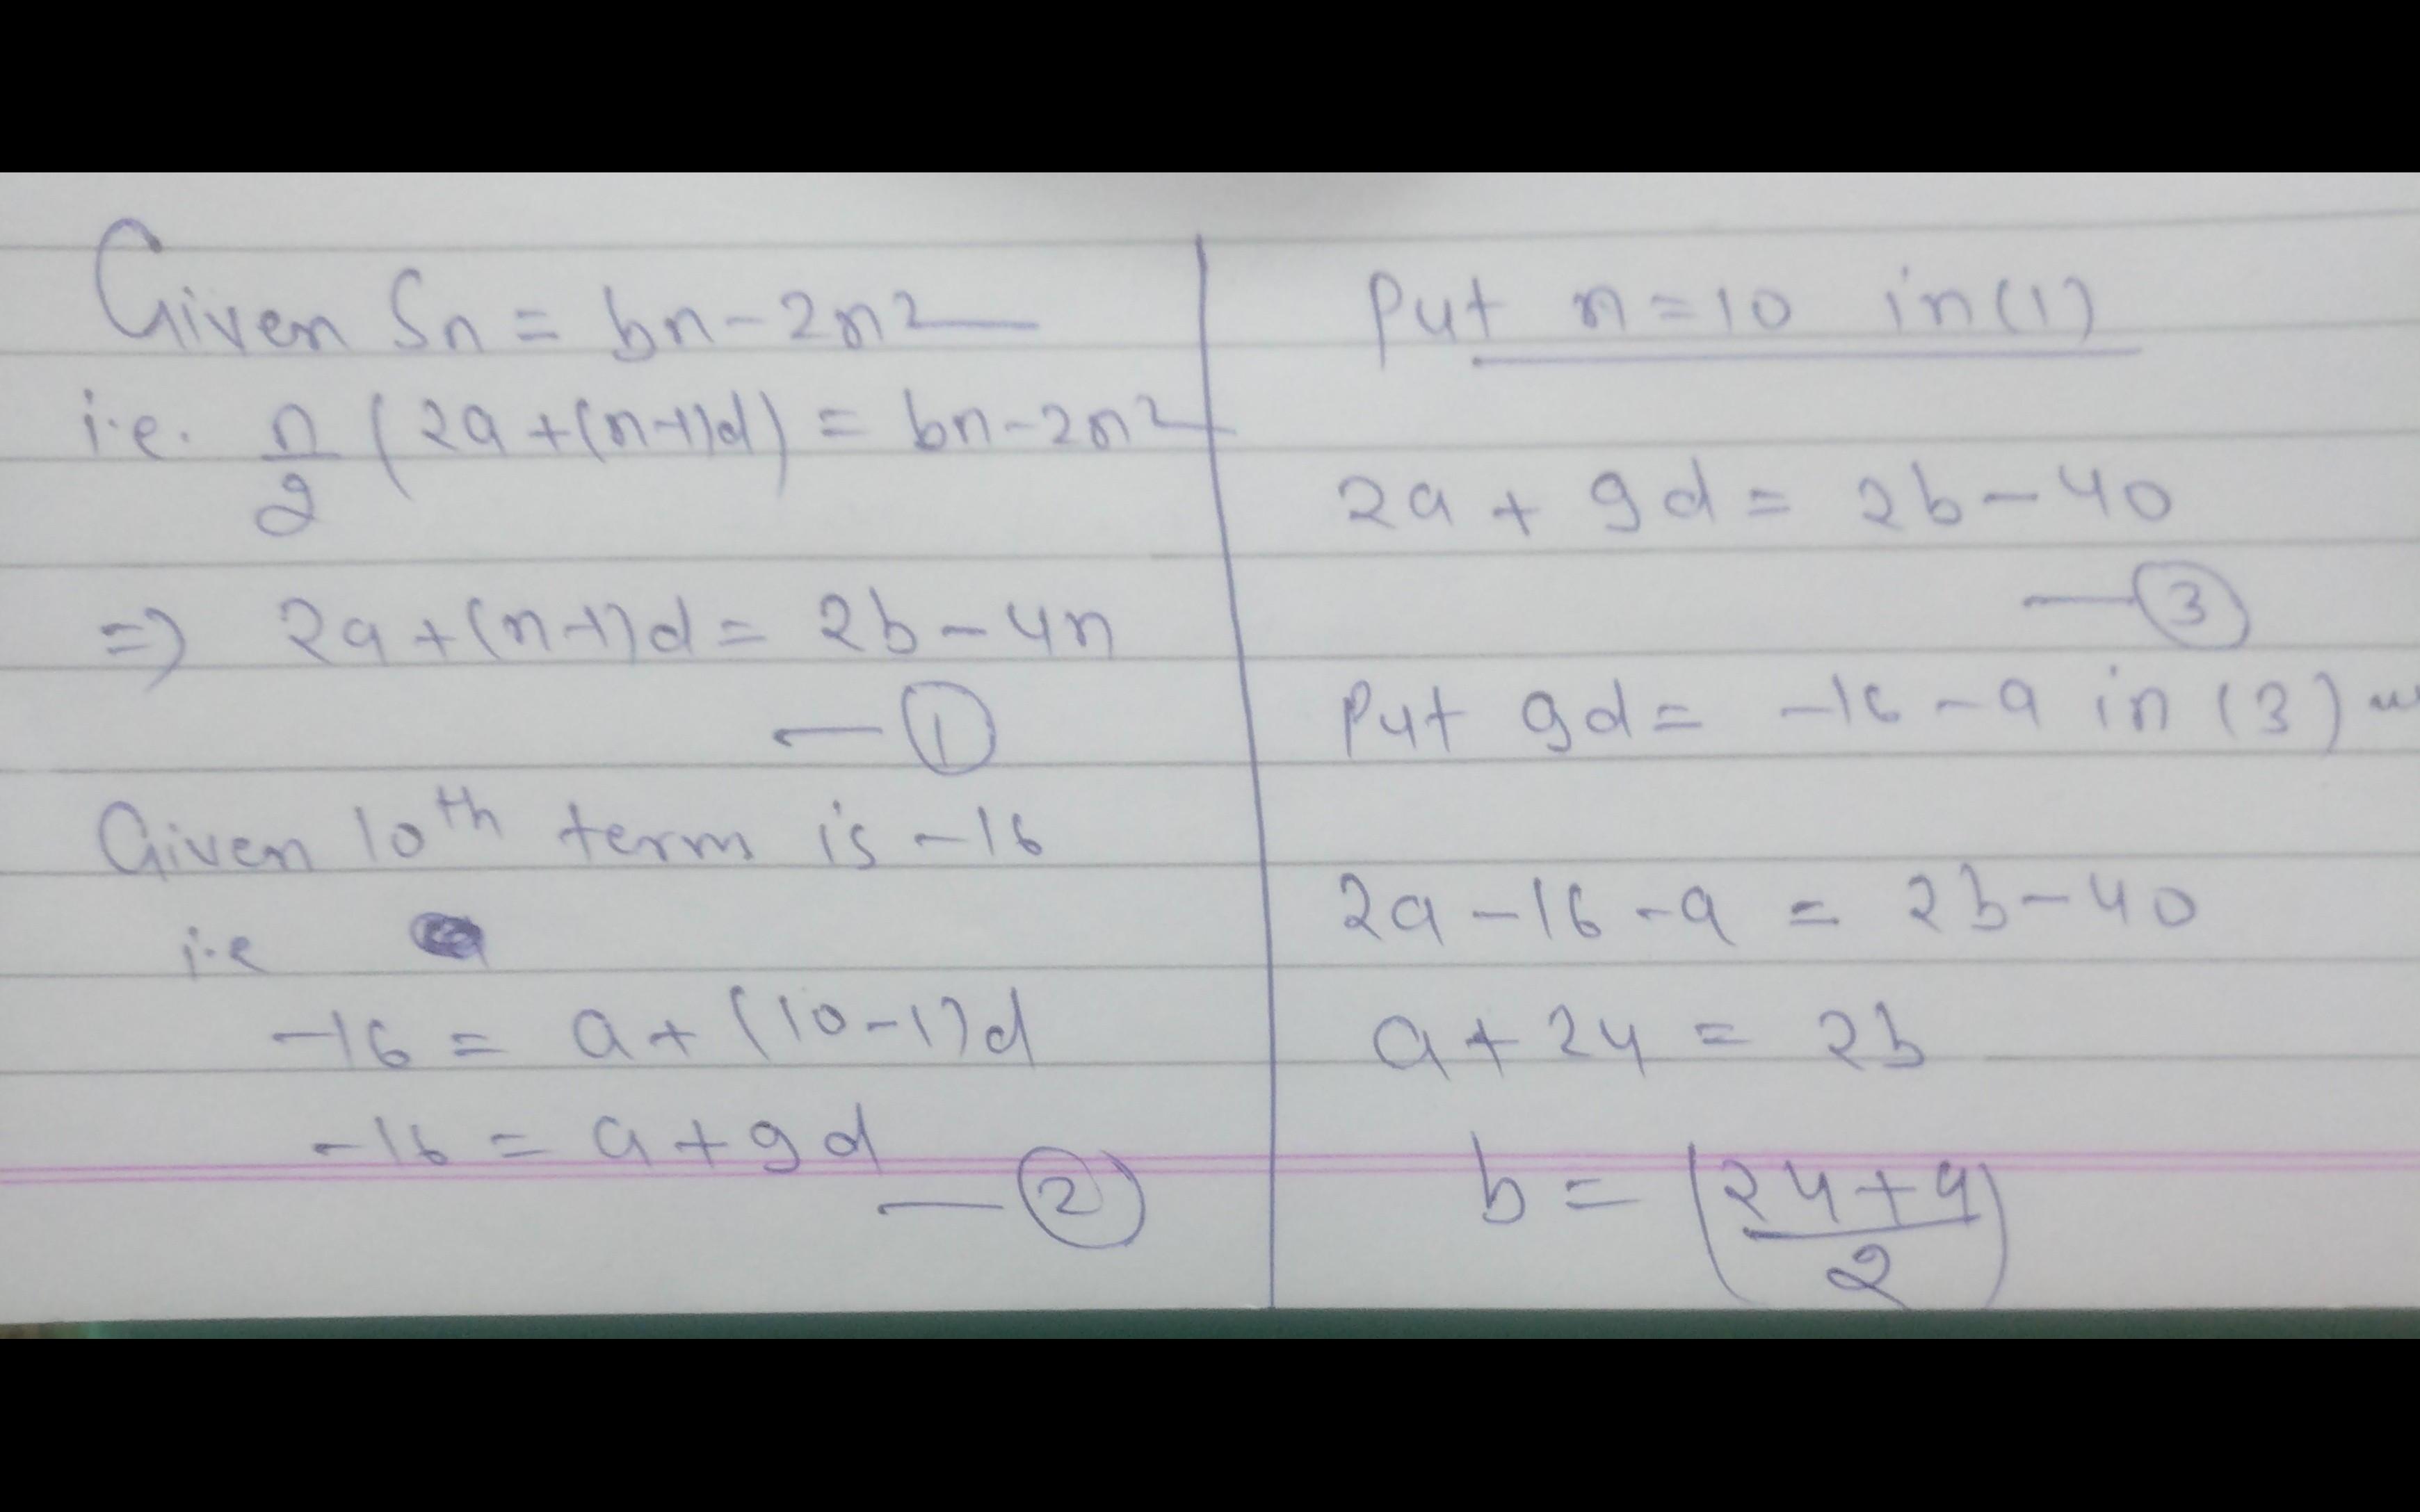 Given Sn = bn-2n²
i.e. n/2 (2a+(n-1)d) = bn-2n²
=> 2a+(n-1)d = 2b-4n
— ①
Given 10th term is -16
i.e
-16 = a+(10-1)d
-16 = a+9d
— ②
Put n=10 in (1)
2a + 9d = 2b-40
— ③
Put 9d = -16-a in (3)
2a-16-a = 2b-40
a+24 = 2b
b = (24+a/2)